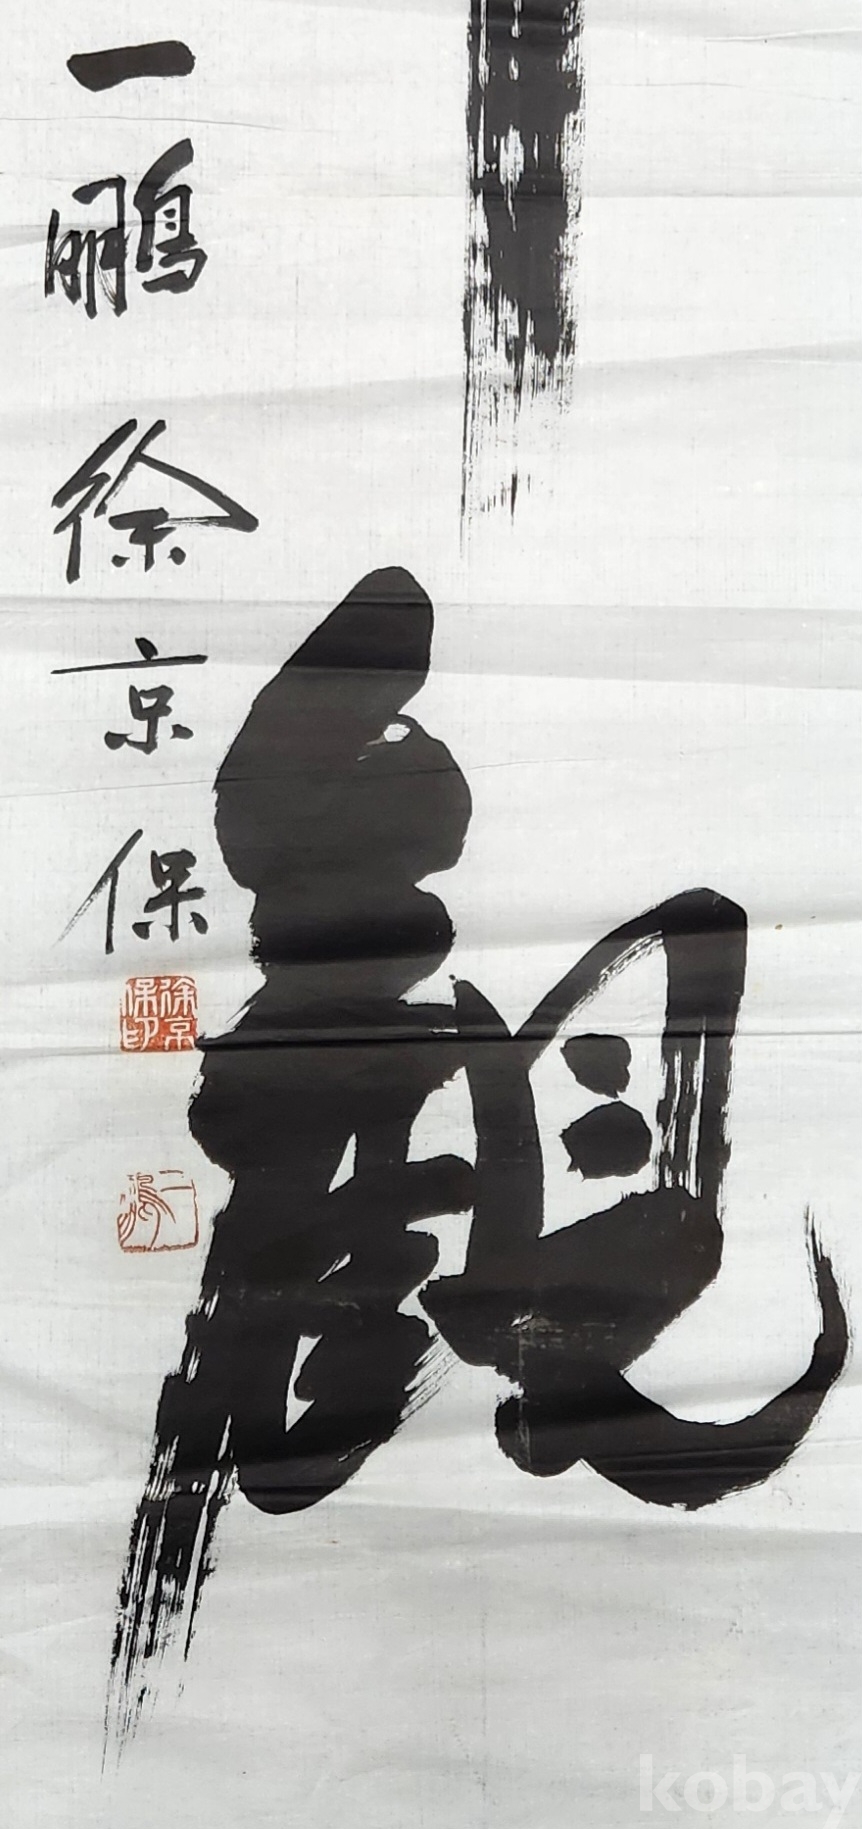 觀
一鵬 徐京保
徐京保印
一鵬
kobay